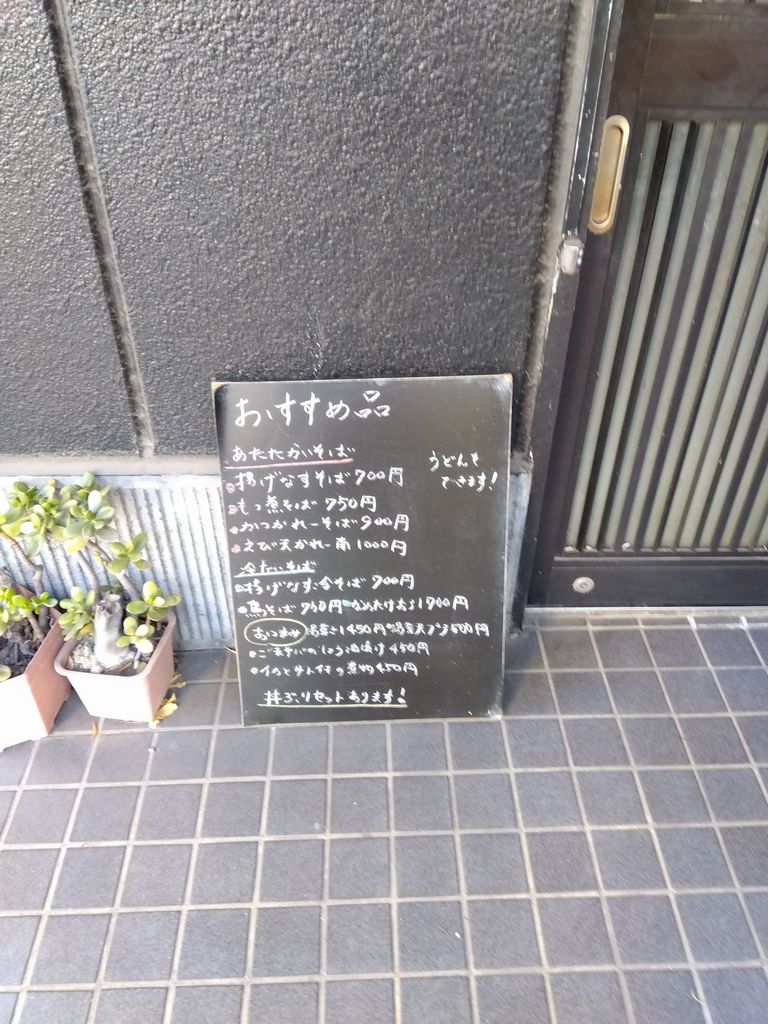 おすすめ品
あたたかいそば
うどんも
できます!
揚げなすそば 700円
もつ煮そば 750円
かつかれーそば 900円
えび天かれー南 1000円
冷たいそば
揚げなす冷そば 700円
そば 750円 なめたけおろし 700円
おつまみ 450円 天プラ 500円
ごまサバの 漬け 450円
イカとサトイモの煮物 450円
丼ぶりセットあります!